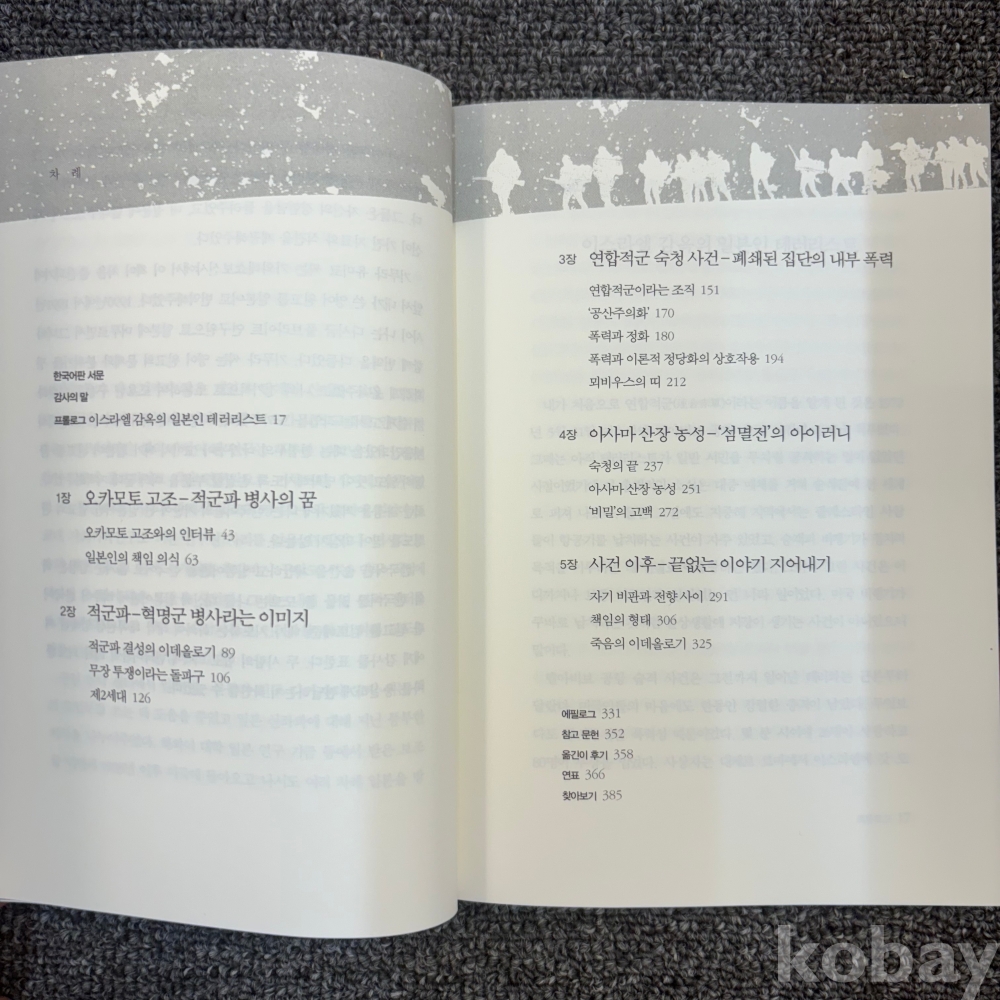 차 례
한국어판 서문
감사의 말
프롤로그 이스라엘 감옥의 일본인 테러리스트 17
1장 오카모토 고조-적군파 병사의 꿈
오카모토 고조와의 인터뷰 43
일본인의 책임 의식 63
2장 적군파-혁명군 병사라는 이미지
적군파 결성의 이데올로기 89
무장 투쟁이라는 돌파구 106
제2세대 126
3장 연합적군 숙청 사건-폐쇄된 집단의 내부 폭력
연합적군이라는 조직 151
‘공산주의화’ 170
폭력과 정화 180
폭력과 이론적 정당화의 상호작용 194
뫼비우스의 띠 212
4장 아사마 산장 농성-‘섬멸전’의 아이러니
숙청의 끝 237
아사마 산장 농성 251
‘비밀’의 고백 272
5장 사건 이후-끝없는 이야기 지어내기
자기 비판과 전향 사이 291
책임의 형태 306
죽음의 이데올로기 325
에필로그 331
참고 문헌 352
옮긴이 후기 358
연표 366
찾아보기 385
kobay